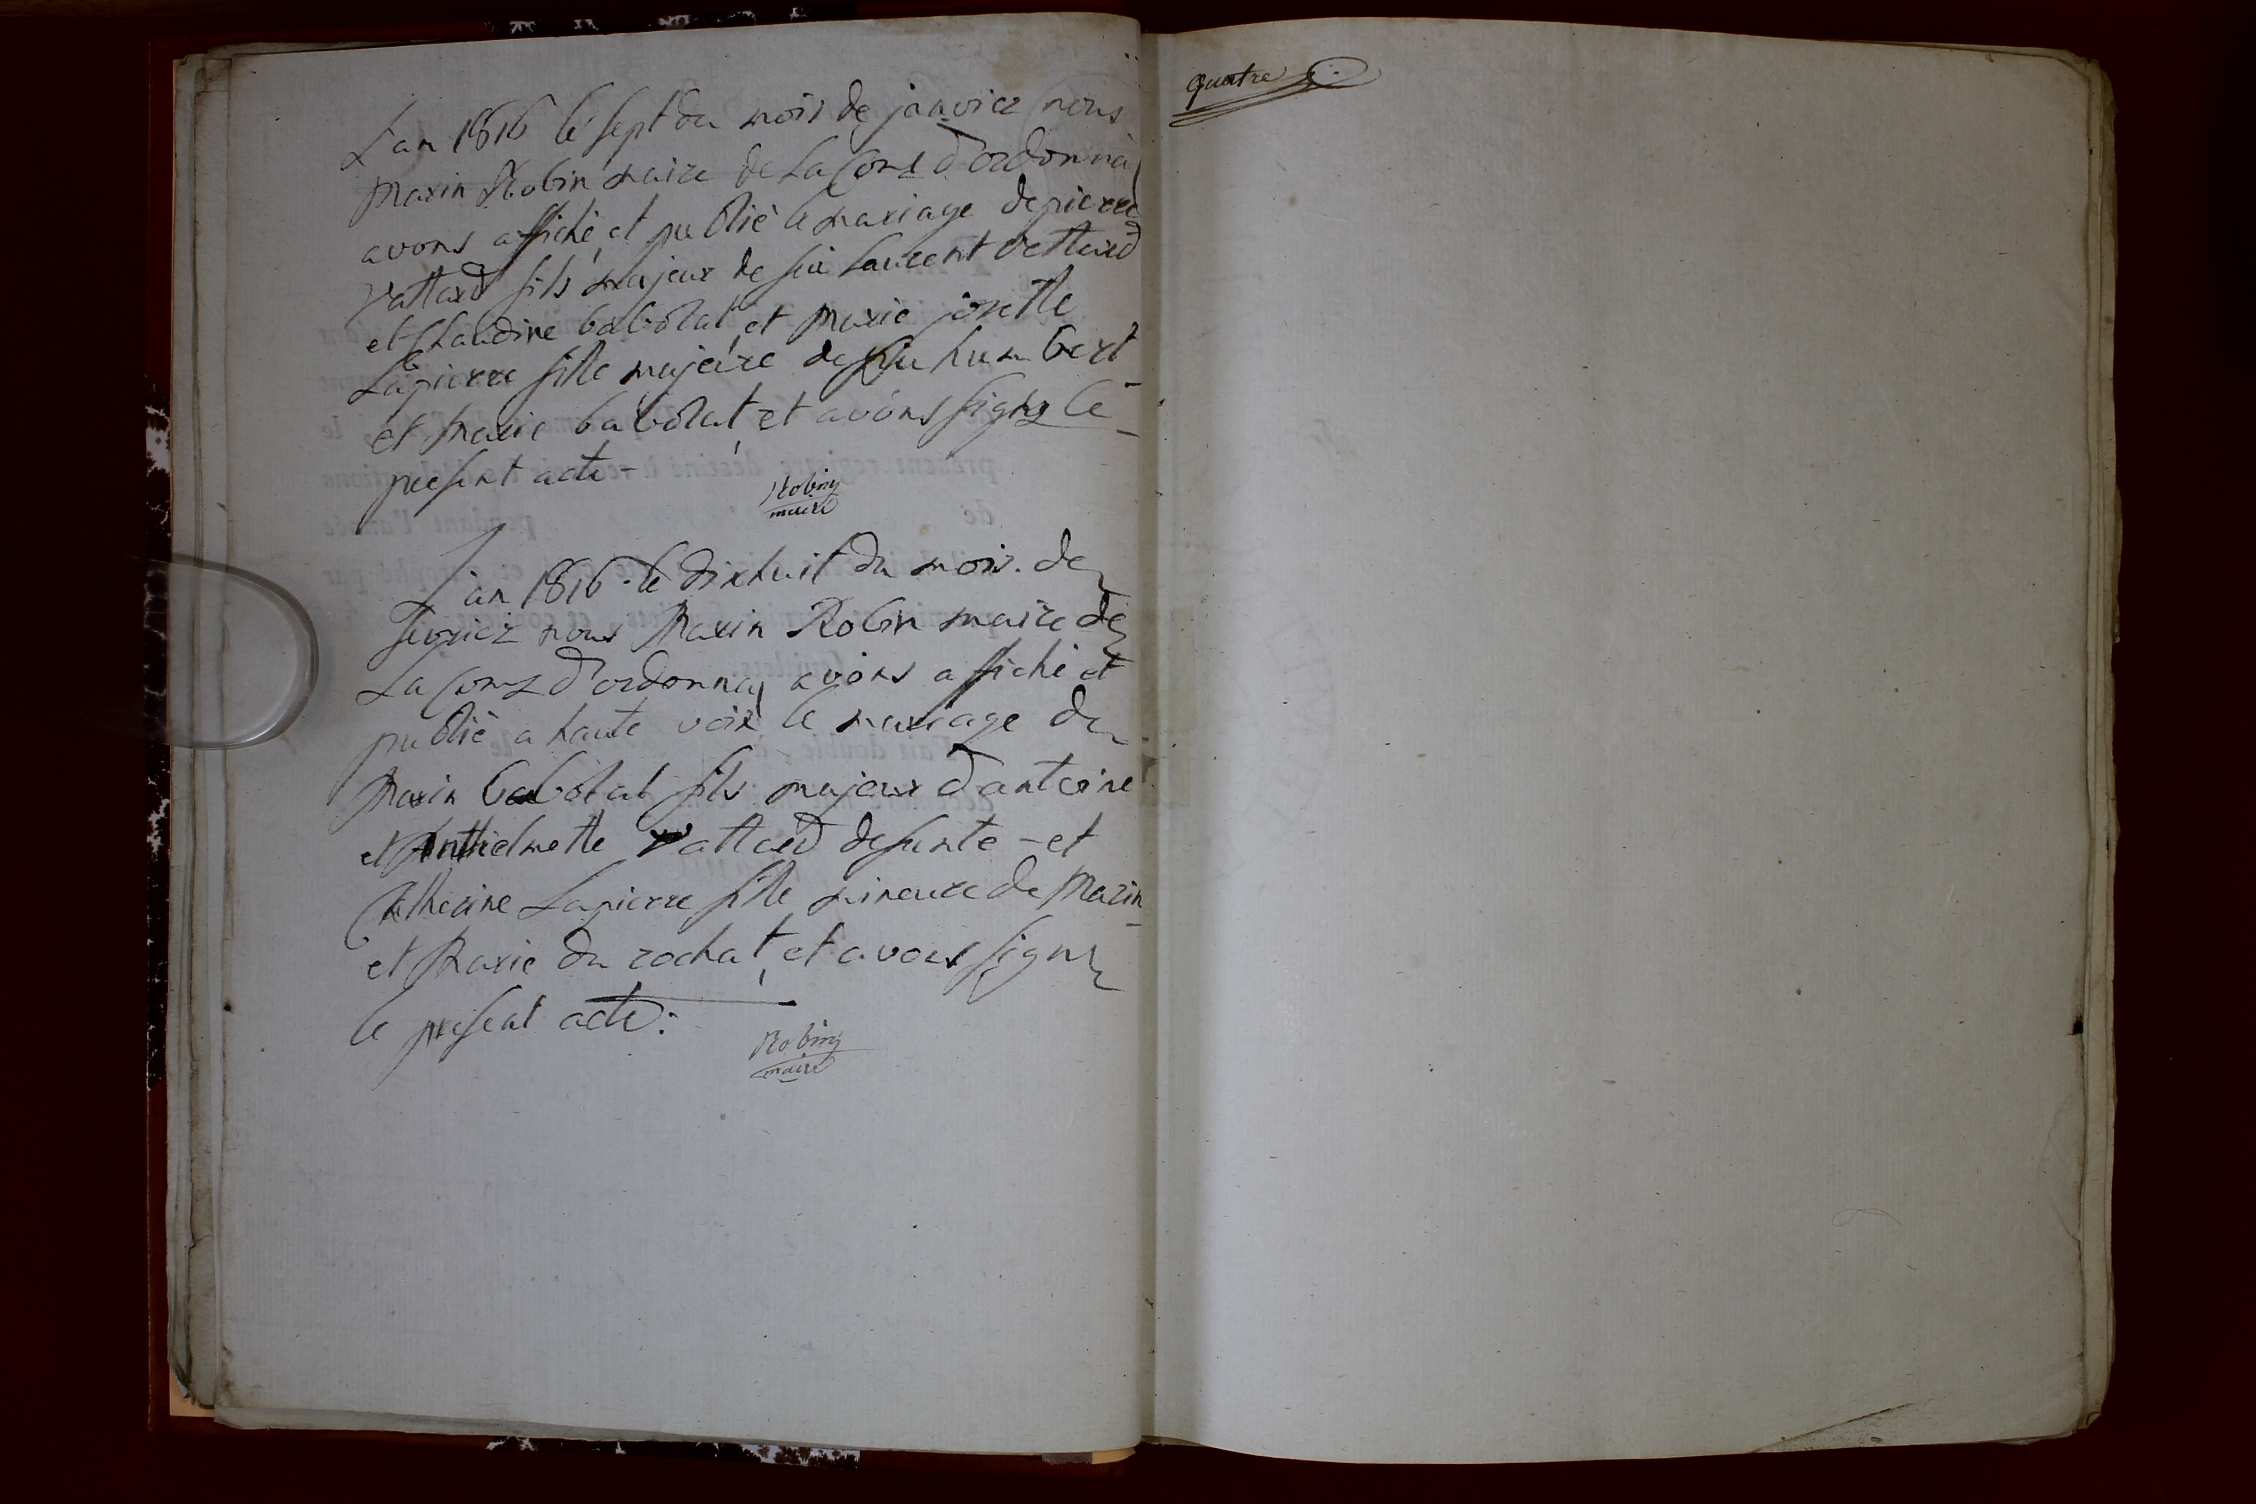 L'an 1816 le sept du mois de janvier nous
Marin Robin maire de la Com.e d'ordonna
avons affiché et publié le mariage de pierre
vattard fils majeur de feu Laurent Vettard
et Claudine babolat, et Marie josette
Lapierre fille majeure de feu humbert
et Marie babolat, et avons signé le
present acte -
Robin
maire
L'an 1816 le dixhuit du mois de
fevrier nous Marin Robin maire de
La Com.e d'ordonna avons affiché et
publié a haute voix le mariage de
Marin babolat fils majeur d'antoine
et Anthelmette vattard defunte - et
Catherine Lapierre fille mineure de Marin
et Marie du rochat, et avons signé
le present acte :
Robin
maire
quatre